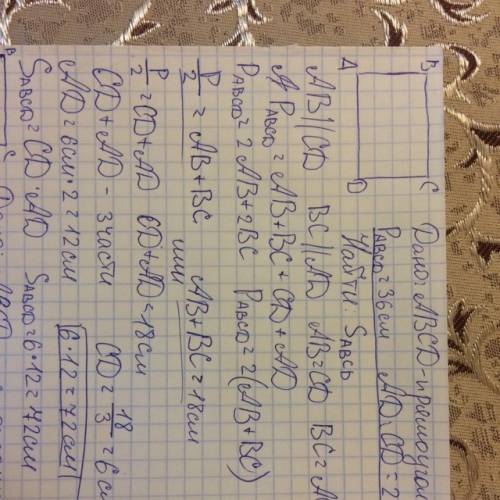 B C Дано: ABCD - прямоуго
A D PABCD = 36 см AD:CD = 2
Найти: SABCD
AB || CD BC || AD AB = CD BC = A
PABCD = AB + BC + CD + AD
PABCD = 2AB + 2BC PABCD = 2(AB + BC)
P/2 = AB + BC или AB + BC = 18 см
P/2 = CD + AD CD + AD = 18 см
CD + AD - 3 части CD = 18/3 = 6 см
AD = 6 см · 2 = 12 см 6 · 12 = 72 см
SABCD = CD · AD SABCD = 6 · 12 = 72 см
B C